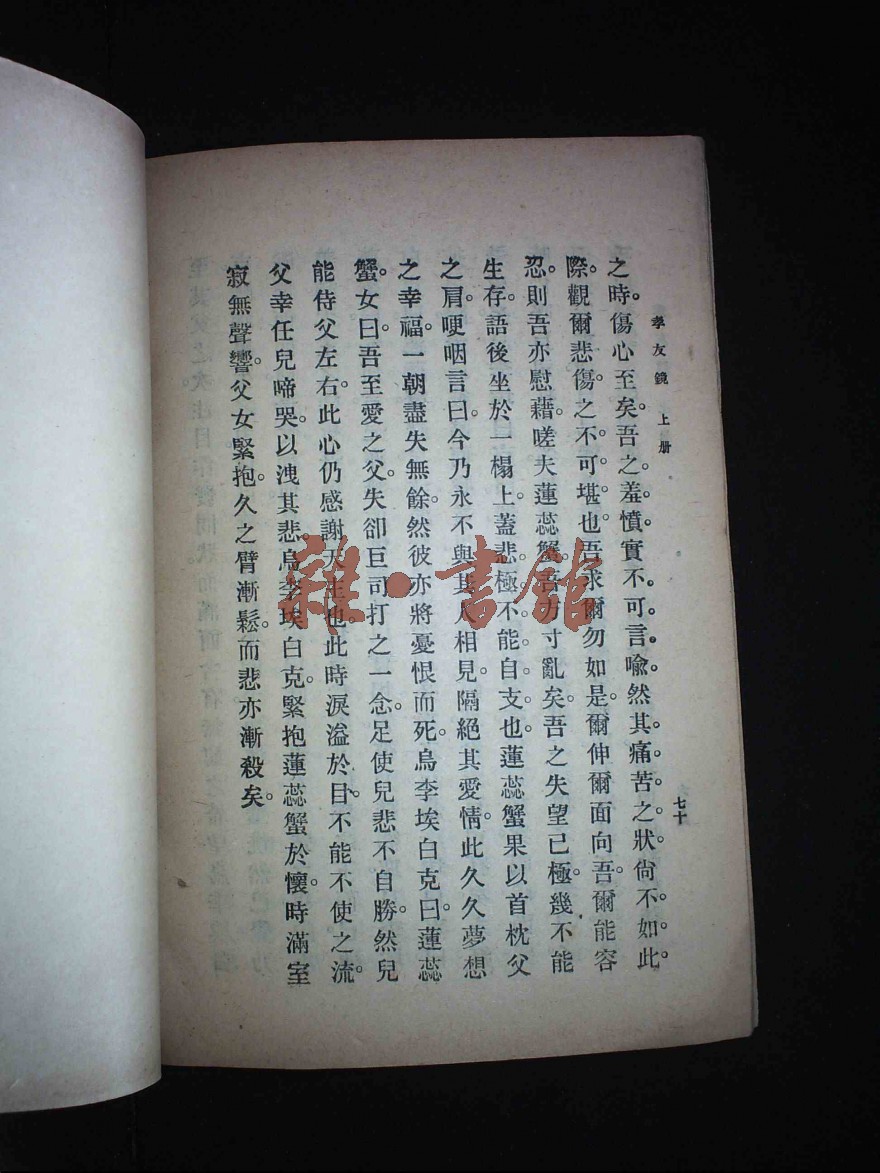 孝友鏡 上册
七十
之時。傷心至矣。吾之羞憤實不可言喩。然其痛苦之狀。尙不如此
際。觀爾悲傷。之不可堪也。吾求爾勿如是。爾伸爾面向吾。爾能容
忍。則吾亦慰藉。嗟夫蓮蕊蟹。吾方寸亂矣。吾之失望已極。幾不能
生存。語後坐於一榻上。蓋悲極不能自支也。蓮蕊蟹果以首枕父
之肩。哽咽言曰。今乃永不與其人相見。隔絕其愛情。此久久夢想
之幸福。一朝盡失無餘。然彼亦將憂恨而死。烏李埃白克曰。蓮蕊
蟹。女曰。吾至愛之父。失卻巨司打之一念。足使兒悲不自勝。然兒
能侍父左右。此心仍感謝天主也。此時淚溢於目。不能不使之流。
父幸任兒啼哭。以洩其悲。烏李埃白克。緊抱蓮蕊蟹於懷。時滿室
寂無聲響。父女緊抱。久之臂漸鬆。而悲亦漸殺矣。
雜·書館